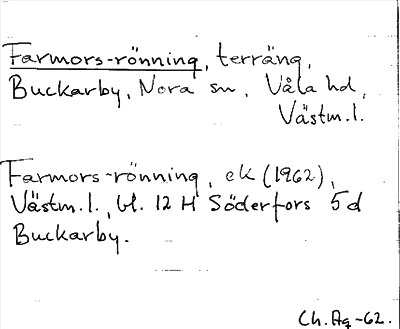 Farmors-rönning, terräng,
Buckarby, Nora sn, Våla hd,
Västm.l.
Farmors-rönning, ek (1962),
Västm.l., bl. 12 H Söderfors 5d
Buckarby.
Ch. Ag -62.